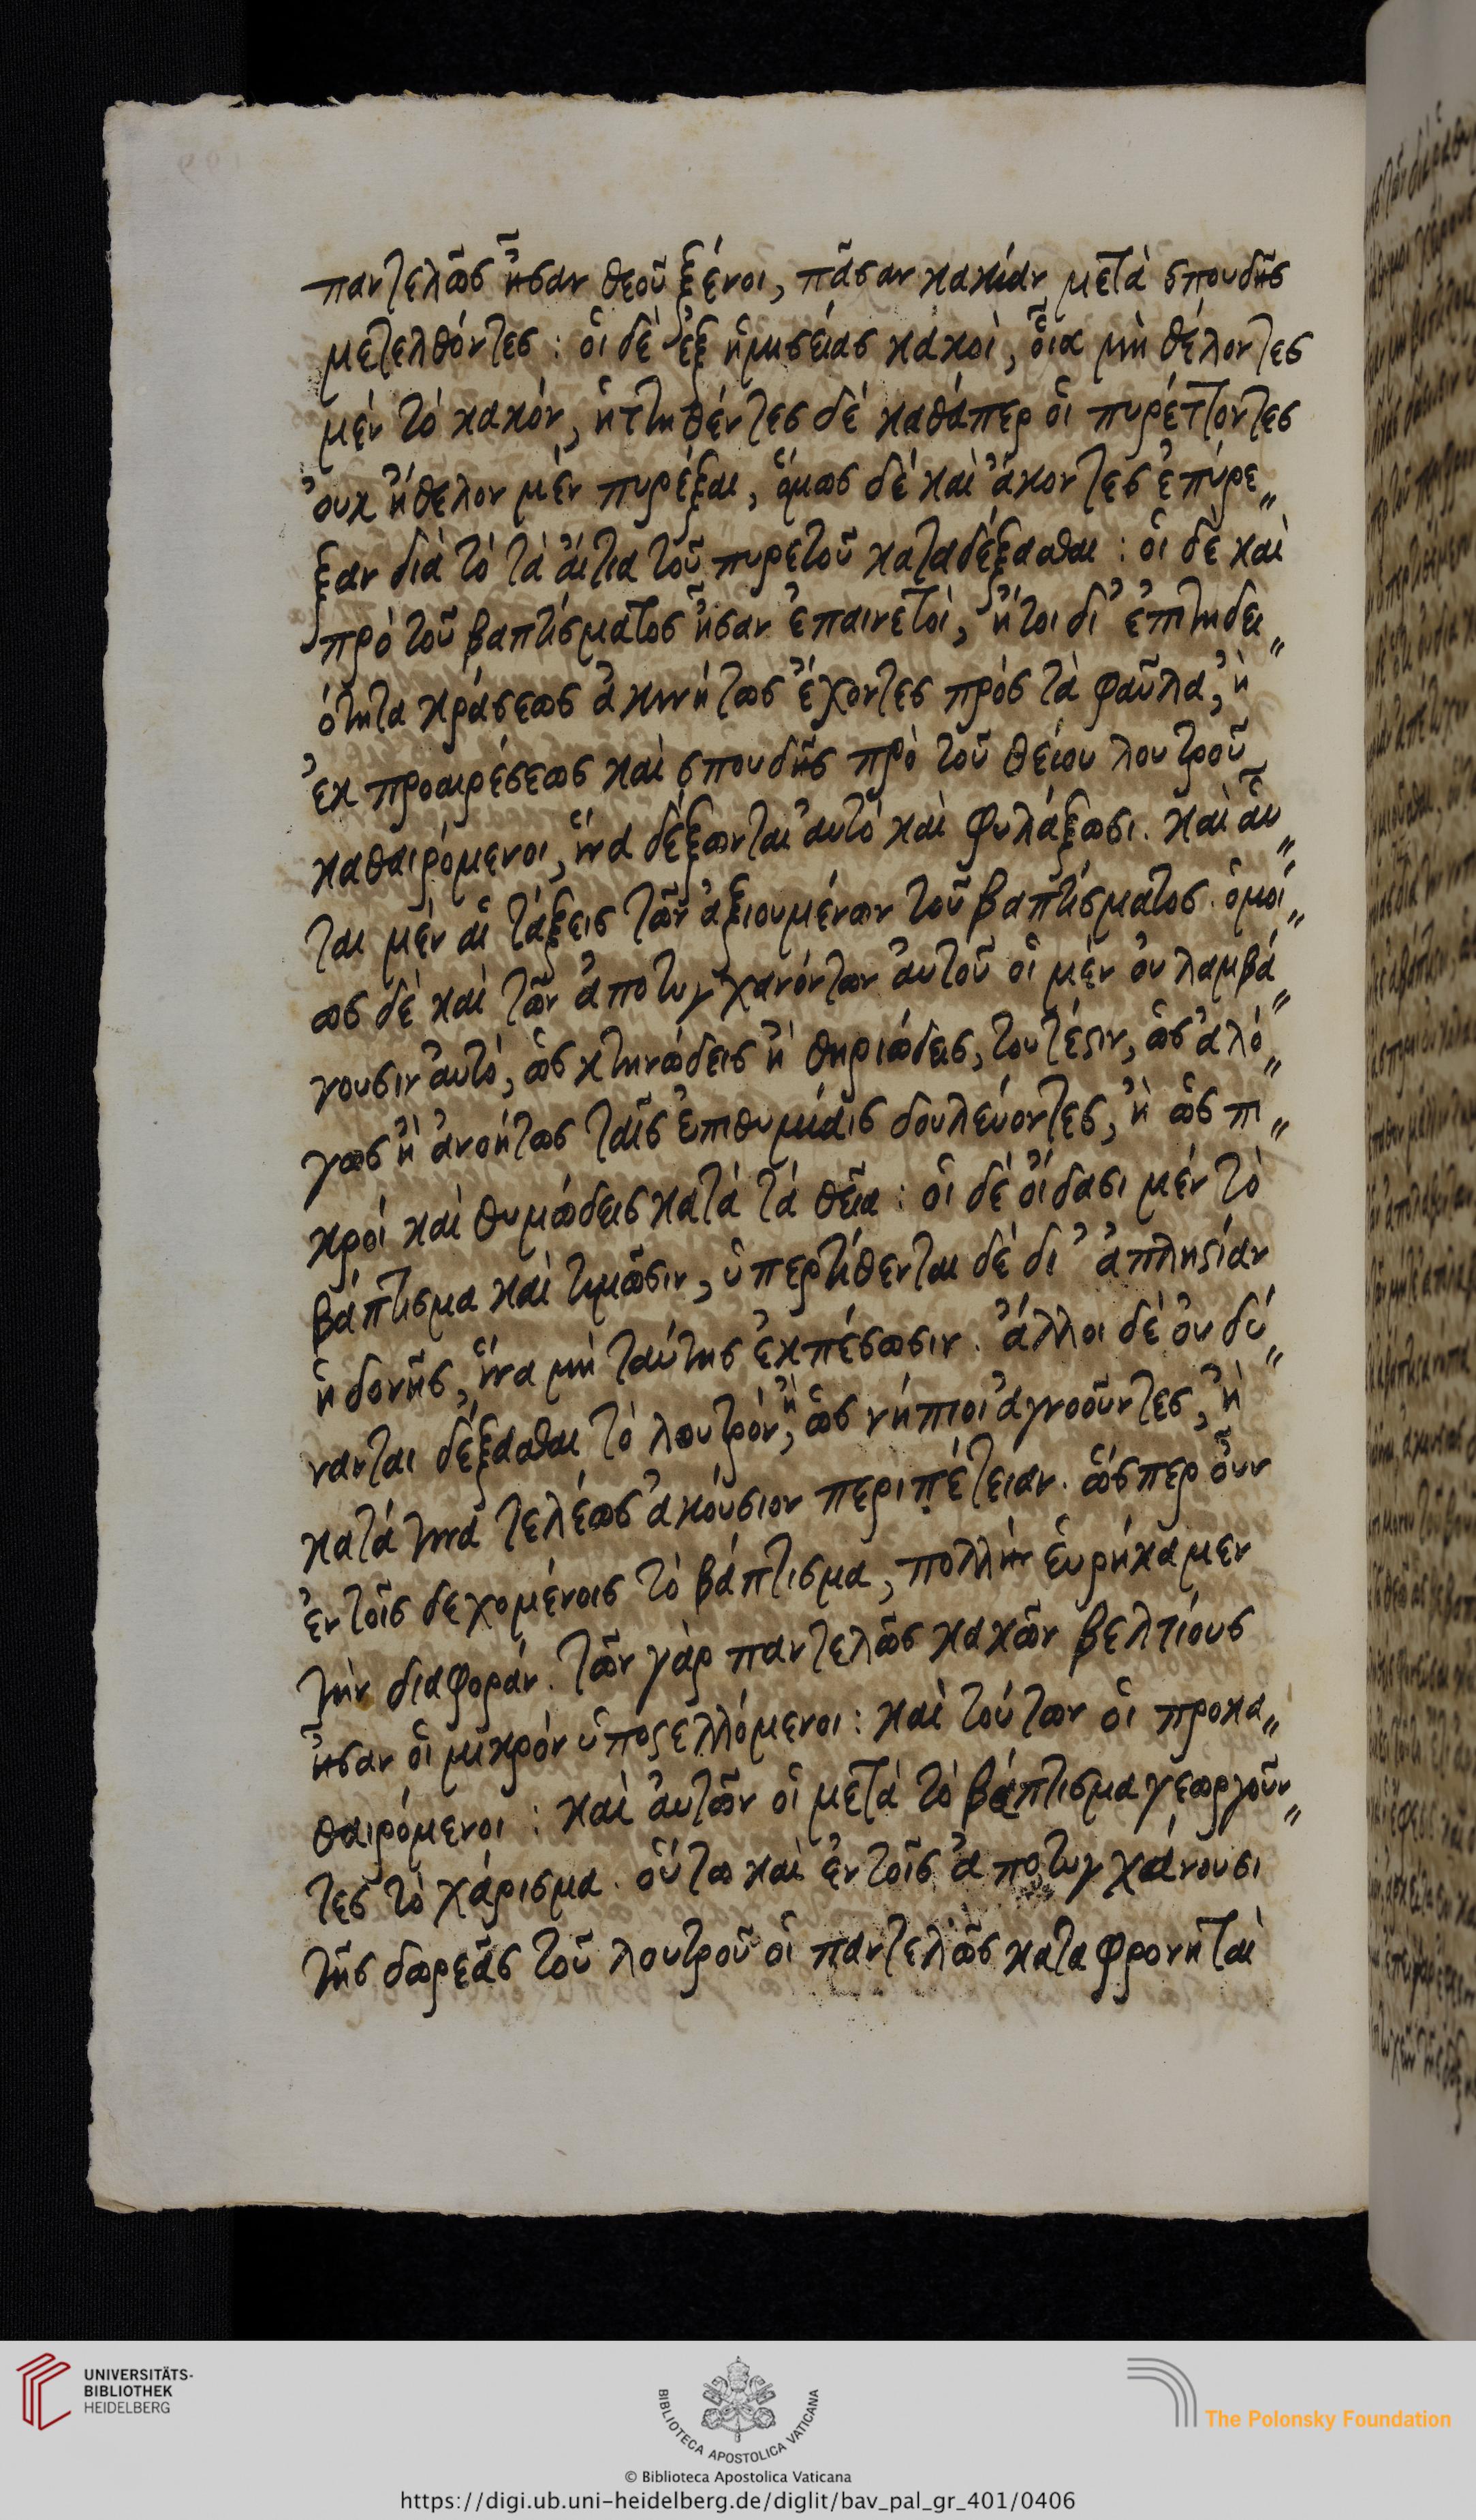 παντελῶς ἦσαν θεοῦ ξένοι, πᾶσαν κακίαν μετὰ σπουδῆς
μετελθόντες : οἱ δὲ ἐξ ἡμισείας κακοὶ, οἷα μὴ θέλοντες
μὲν τὸ κακόν, ἡττηθέντες δὲ καθάπερ οἱ πυρέττοντες
οὐκ ἤθελον μὲν πυρέξαι, ὅμως δὲ καὶ ἄκοντες ἐπύρε„
ξαν διὰ τὸ τὰ αἴτια τοῦ πυρετοῦ καταδέξασθαι : οἱ δὲ καὶ
πρὸ τοῦ βαπτίσματος ἦσαν ἐπαινετοὶ, ἤτοι δι' ἐπιτηδει„
ότητα κράσεως ἀκινήτως ἔχοντες πρὸς τὰ φαῦλα, ἢ
ἐκ προαιρέσεως καὶ σπουδῆς πρὸ τοῦ θείου λουτροῦ
καθαιρόμενοι, ἵνα δέξωνται αὐτὸ καὶ φυλάξωσι. καὶ αὗ„
ται μὲν αἱ τάξεις τῶν ἀξιουμένων τοῦ βαπτίσματος. ὁμοί„
ως δὲ καὶ τῶν ἀποτυγχανόντων αὐτοῦ οἱ μὲν οὐ λαμβά„
νουσιν αὐτό, ὡς κτηνώδεις ἢ θηριώδεις, τουτέστιν, ὡς ἀλό„
γως ἢ ἀνοήτως ταῖς ἐπιθυμίαις δουλεύοντες, ἢ ὡς πι„
κροὶ καὶ θυμώδεις κατὰ τὰ θεῖα : οἱ δὲ οἴδασι μὲν τὸ
βάπτισμα καὶ τιμῶσιν, ὑπερτίθενται δὲ δι' ἀπληστίαν
ἡδονῆς, ἵνα μὴ ταύτης ἐκπέσωσιν. ἄλλοι δὲ οὐ δύ„
νανται δέξασθαι τὸ λουτρόν, ἢ ὡς νήπιοι ἀγνοοῦντες, ἢ
κατά τινα τελέως ἀκούσιον περιπέτειαν. ὥσπερ οὖν
ἐν τοῖς δεχομένοις τὸ βάπτισμα, πολλὴν εὑρήκαμεν
τὴν διαφοράν. τῶν γὰρ παντελῶς κακῶν βελτίους
ἦσαν οἱ μικρὸν ὑποστελλόμενοι : καὶ τούτων οἱ προκα„
θαιρόμενοι : καὶ αὐτῶν οἱ μετὰ τὸ βάπτισμα γεωργοῦν„
τες τὸ χάρισμα. οὕτω καὶ ἐν τοῖς ἀποτυγχάνουσι
τῆς δωρεᾶς τοῦ λουτροῦ οἱ παντελῶς καταφρονηταὶ
UNIVERSITÄTS-
BIBLIOTHEK
HEIDELBERG
BIBLIOTECA APOSTOLICA VATICANA
The Polonsky Foundation
© Biblioteca Apostolica Vaticana
https://digi.ub.uni-heidelberg.de/diglit/bav_pal_gr_401/0406